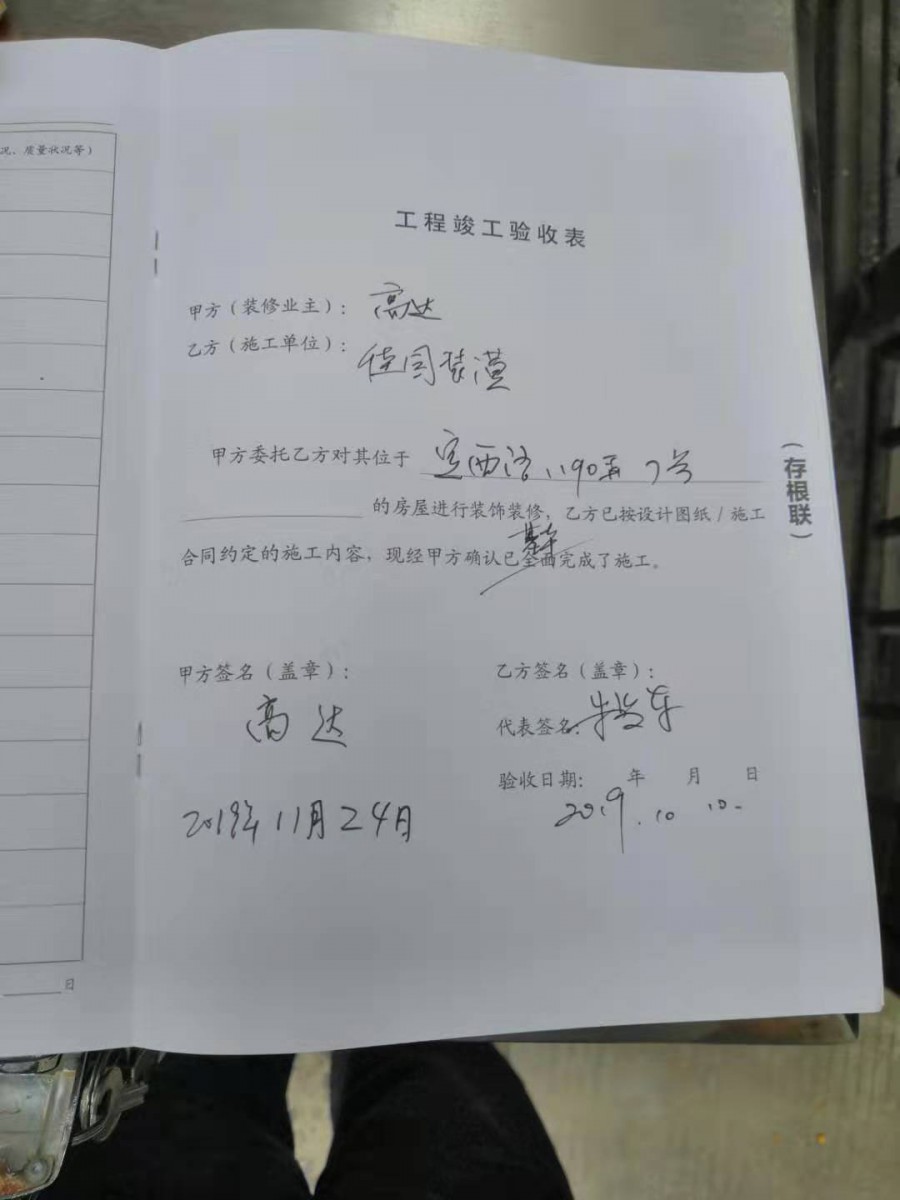 况、质量状况等）
日
工程竣工验收表
甲方（装修业主）：高达
乙方（施工单位）：佳园装潢
甲方委托乙方对其位于 定西路1190弄7号
的房屋进行装饰装修，乙方已按设计图纸/施工
基本
合同约定的施工内容，现经甲方确认已全面完成了施工。
（存根联）
甲方签名（盖章）：
高达
2019年11月24日
乙方签名（盖章）：
代表签名：
验收日期： 年 月 日
2019.10 10.